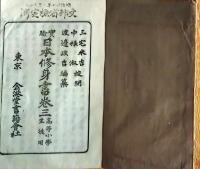 文部省檢定済
三宅米吉校閲
中根淑校閲
渡邊政吉編纂
實驗日本修身書卷三 高等小學生徒用
東京 金港堂書籍會社